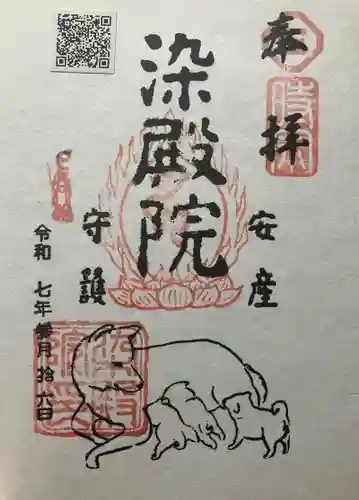 奉拝
時宗
染殿院
安産
守護
令和 七年 参月 拾六日